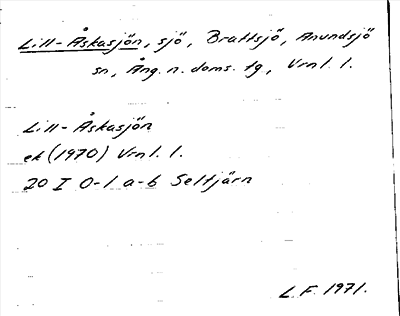 Lill-Åskasjön, sjö, Brattsjö, Anundsjö
sn, Ång. n. doms. tg, Vrnl. l.
Lill-Åskasjön
ek (1970) Vrnl. l.
20 I 0-1 a-b Seltjärn
L.F. 1971.